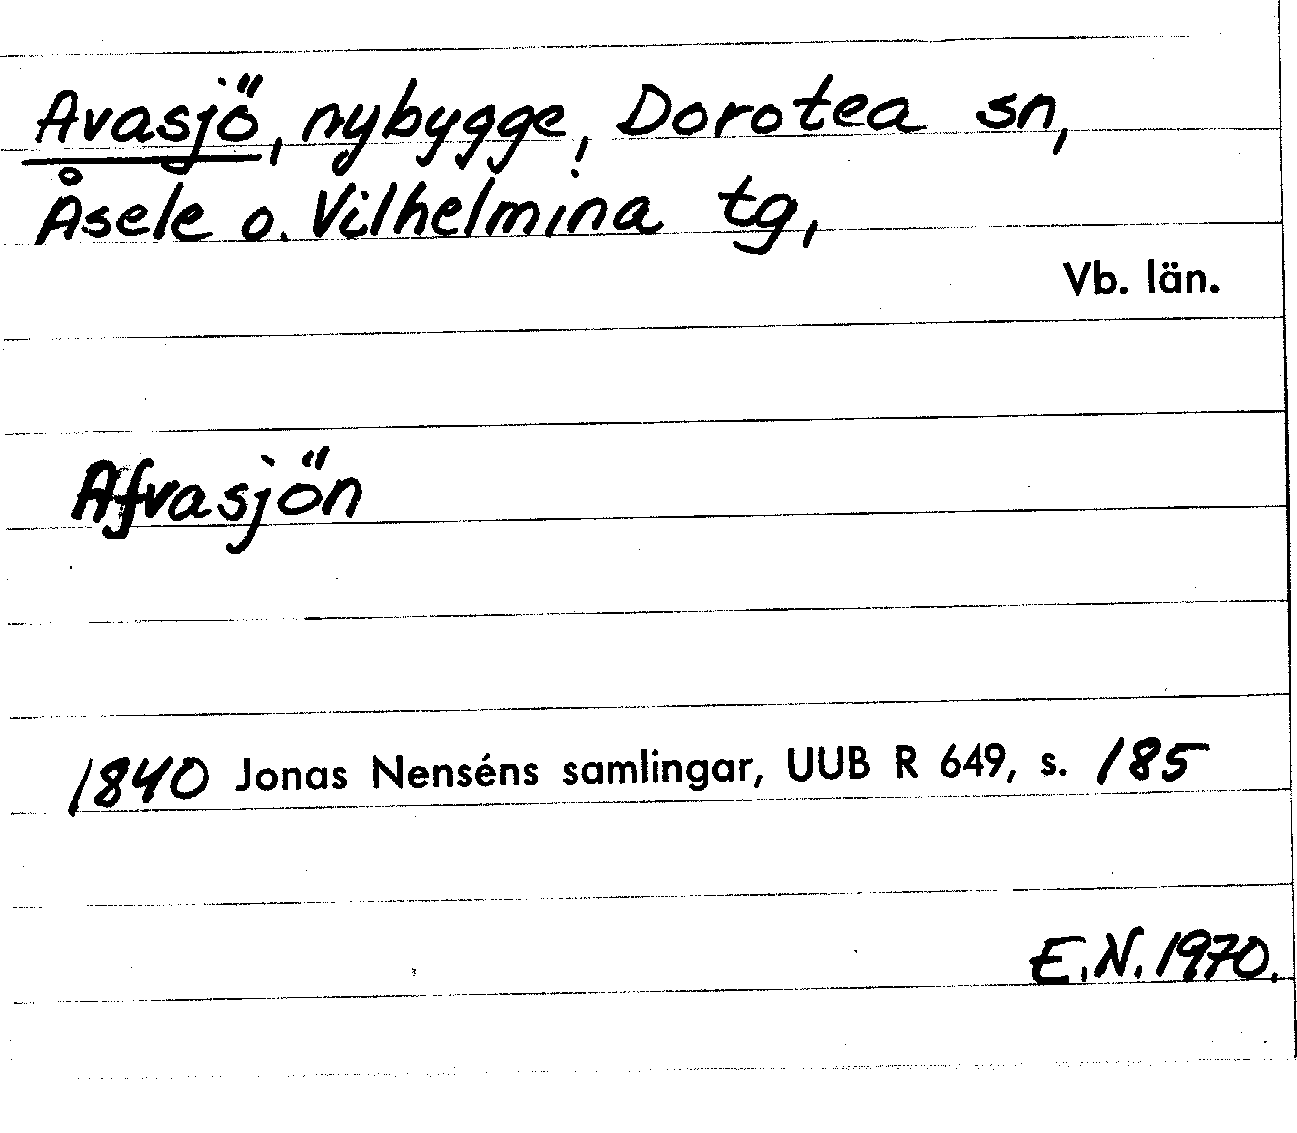 Avasjö, nybygge, Dorotea sn,
Åsele o. Vilhelmina tg,
Vb. län.
Afvasjön
1840 Jonas Nenséns samlingar, UUB R 649, s. 185
E.N. 1970.